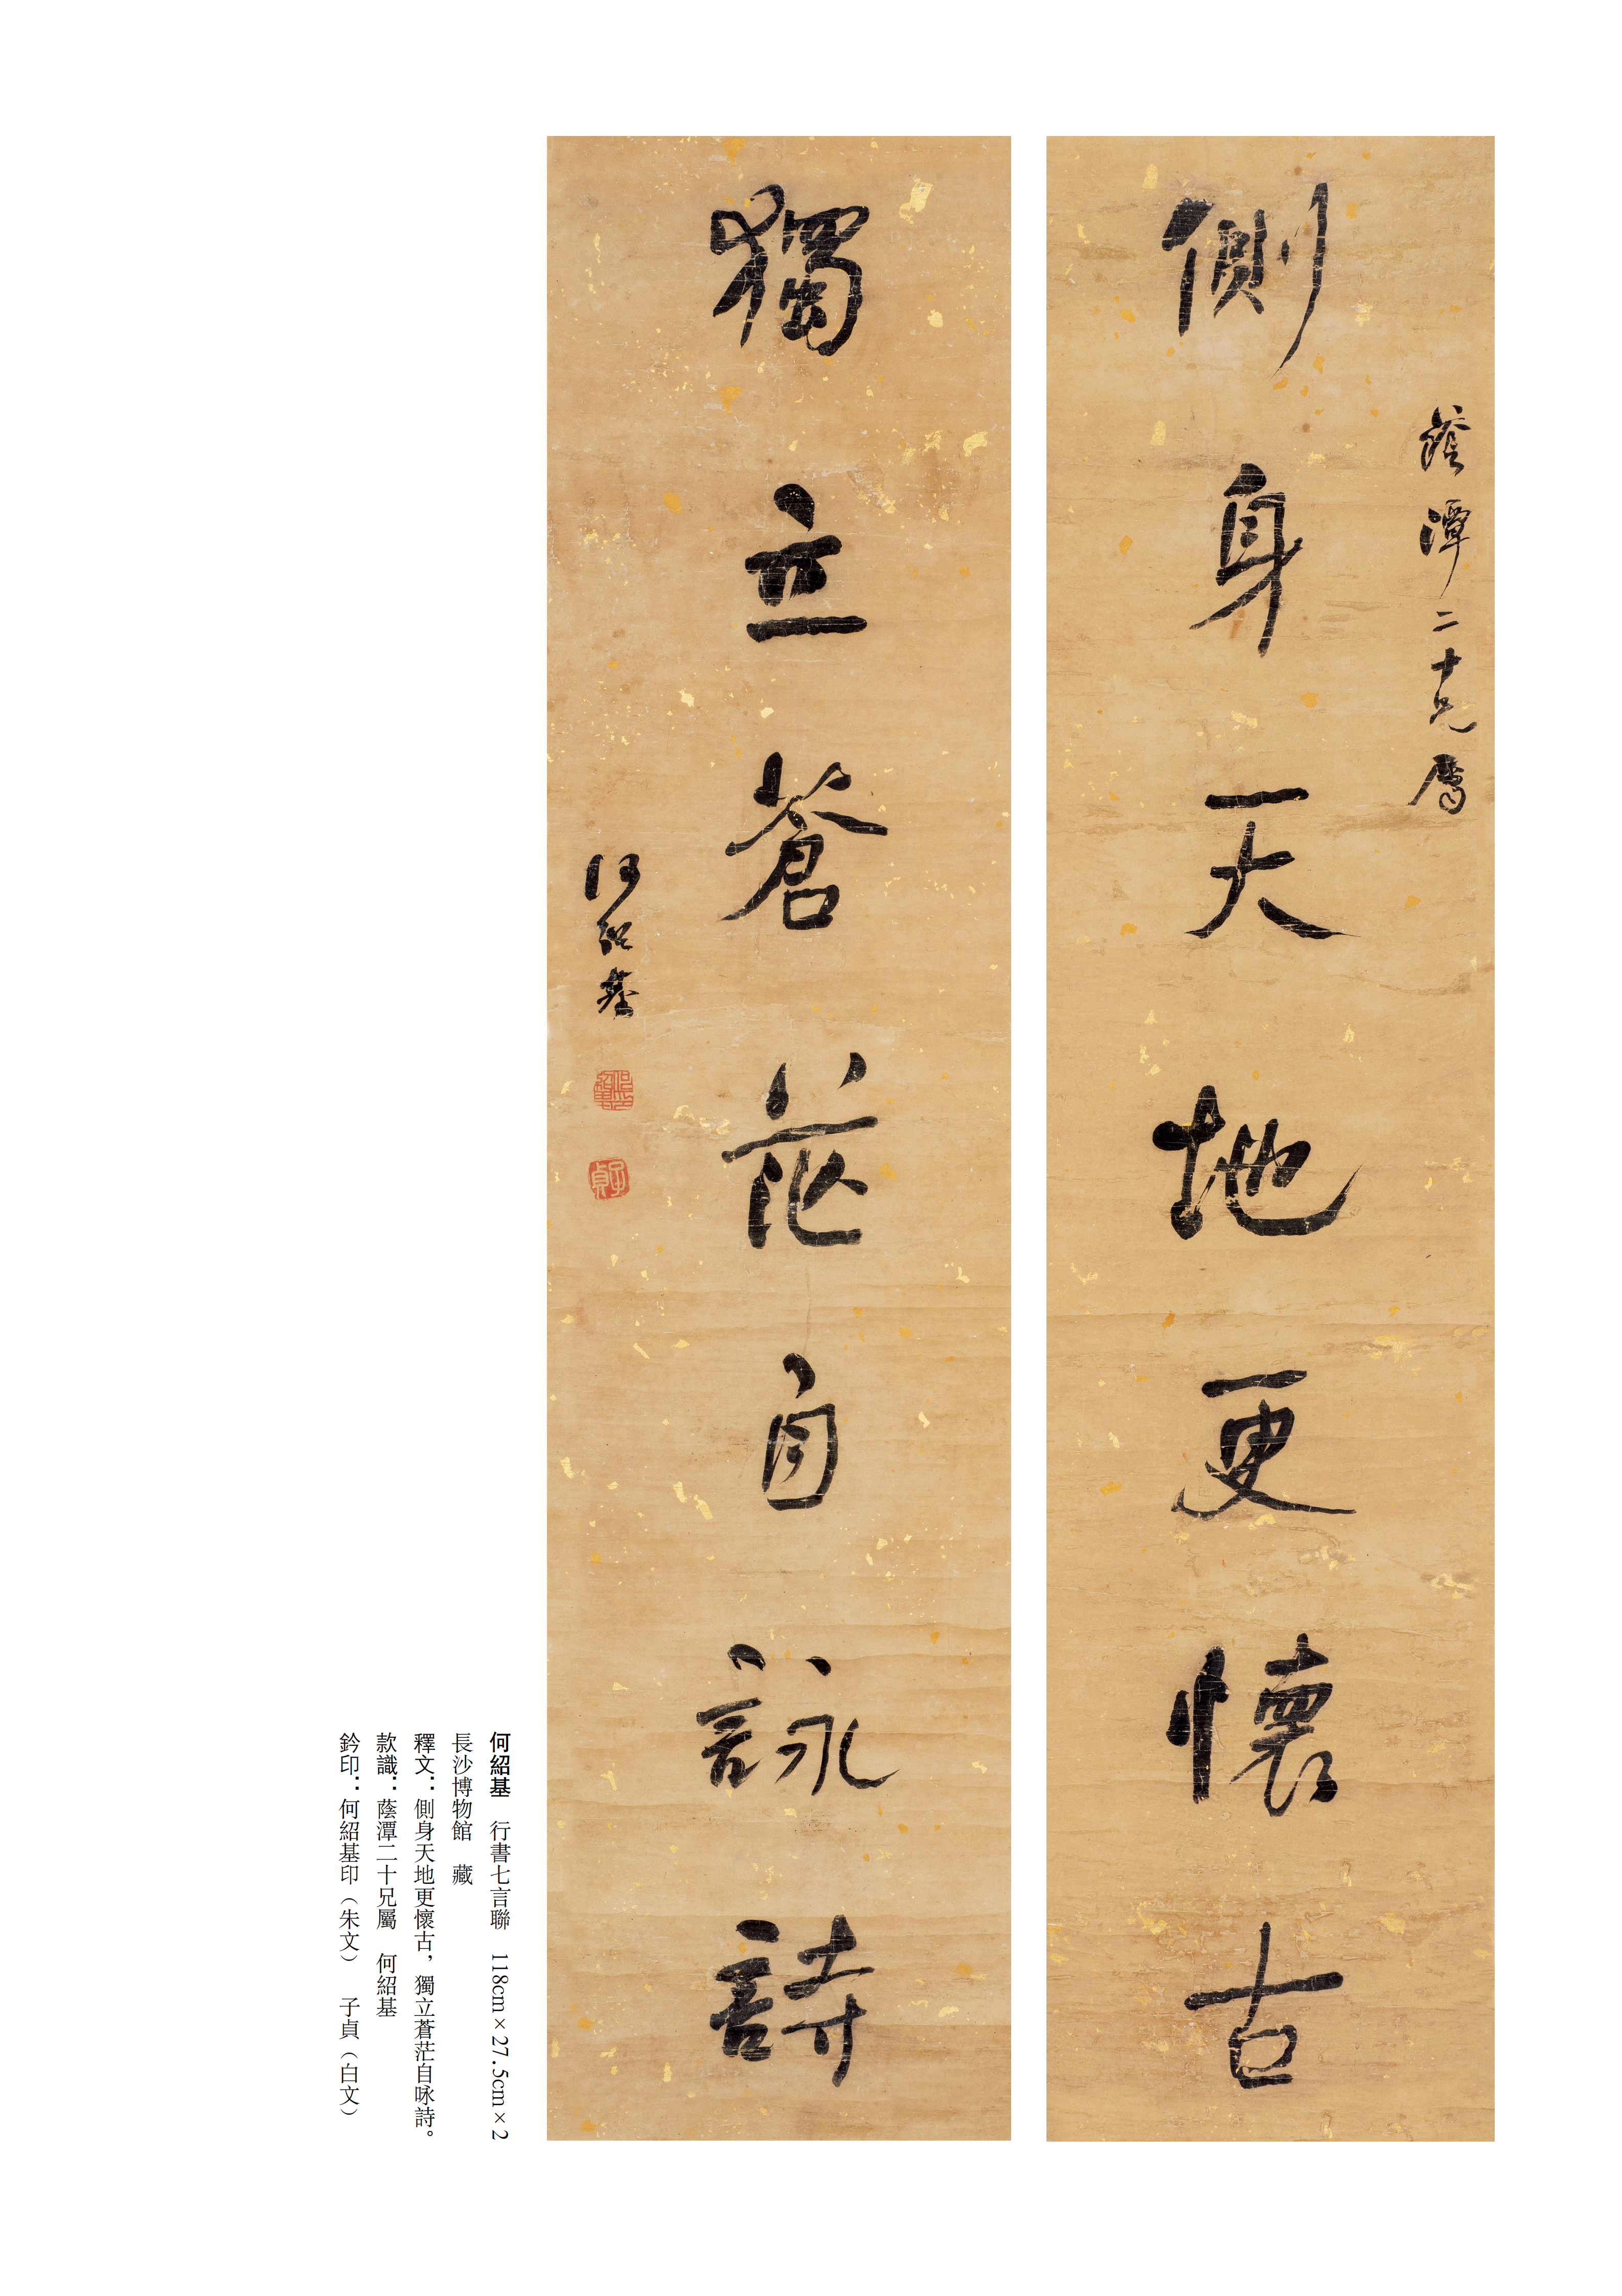 側身天地更懷古
蔭潭二十兄屬
獨立蒼茫自詠詩
何紹基
何紹基印
子貞
何紹基　行書七言聯　118cm×27.5cm×2
長沙博物館　藏
釋文：側身天地更懷古，獨立蒼茫自咏詩。
款識：蔭潭二十兄屬　何紹基
鈐印：何紹基印（朱文）　子貞（白文）